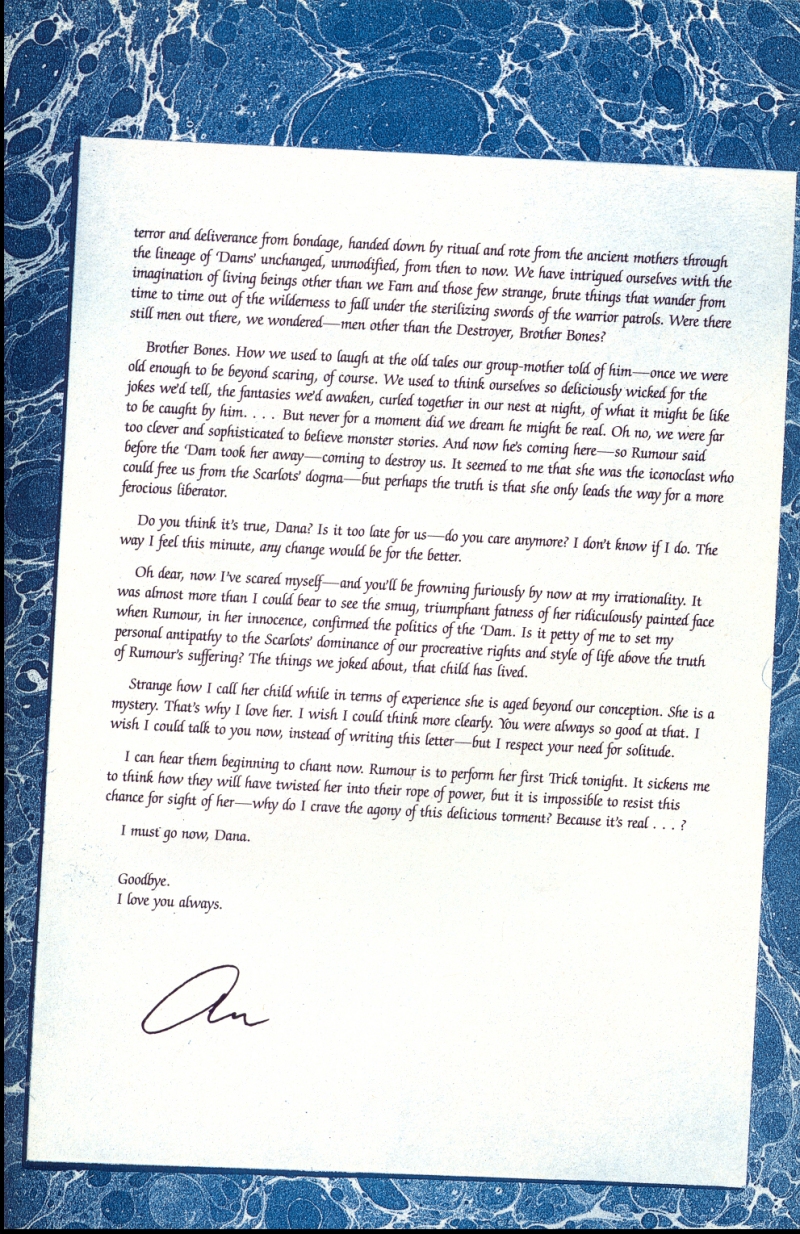 terror and deliverance from bondage, handed down by ritual and rote from the ancient mothers through
the lineage of 'Dams' unchanged, unmodified, from then to now. We have intrigued ourselves with the
imagination of living beings other than we Fam and those few strange, brute things that wander from
time to time out of the wilderness to fall under the sterilizing swords of the warrior patrols. Were there
still men out there, we wondered—men other than the Destroyer, Brother Bones?
Brother Bones. How we used to laugh at the old tales our group-mother told of him—once we were
old enough to be beyond scaring, of course. We used to think ourselves so deliciously wicked for the
jokes we'd tell, the fantasies we'd awaken, curled together in our nest at night, of what it might be like
to be caught by him. . . . But never for a moment did we dream he might be real. Oh no, we were far
too clever and sophisticated to believe monster stories. And now he's coming here—so Rumour said
before the 'Dam took her away—coming to destroy us. It seemed to me that she was the iconoclast who
could free us from the Scarlots' dogma—but perhaps the truth is that she only leads the way for a more
ferocious liberator.
Do you think it's true, Dana? Is it too late for us—do you care anymore? I don't know if I do. The
way I feel this minute, any change would be for the better.
Oh dear, now I've scared myself—and you'll be frowning furiously by now at my irrationality. It
was almost more than I could bear to see the smug, triumphant fatness of her ridiculously painted face
when Rumour, in her innocence, confirmed the politics of the 'Dam. Is it petty of me to set my
personal antipathy to the Scarlots' dominance of our procreative rights and style of life above the truth
of Rumour's suffering? The things we joked about, that child has lived.
Strange how I call her child while in terms of experience she is aged beyond our conception. She is a
mystery. That's why I love her. I wish I could think more clearly. You were always so good at that. I
wish I could talk to you now, instead of writing this letter—but I respect your need for solitude.
I can hear them beginning to chant now. Rumour is to perform her first Trick tonight. It sickens me
to think how they will have twisted her into their rope of power, but it is impossible to resist this
chance for sight of her—why do I crave the agony of this delicious torment? Because it's real . . . ?
I must go now, Dana.
Goodbye.
I love you always.